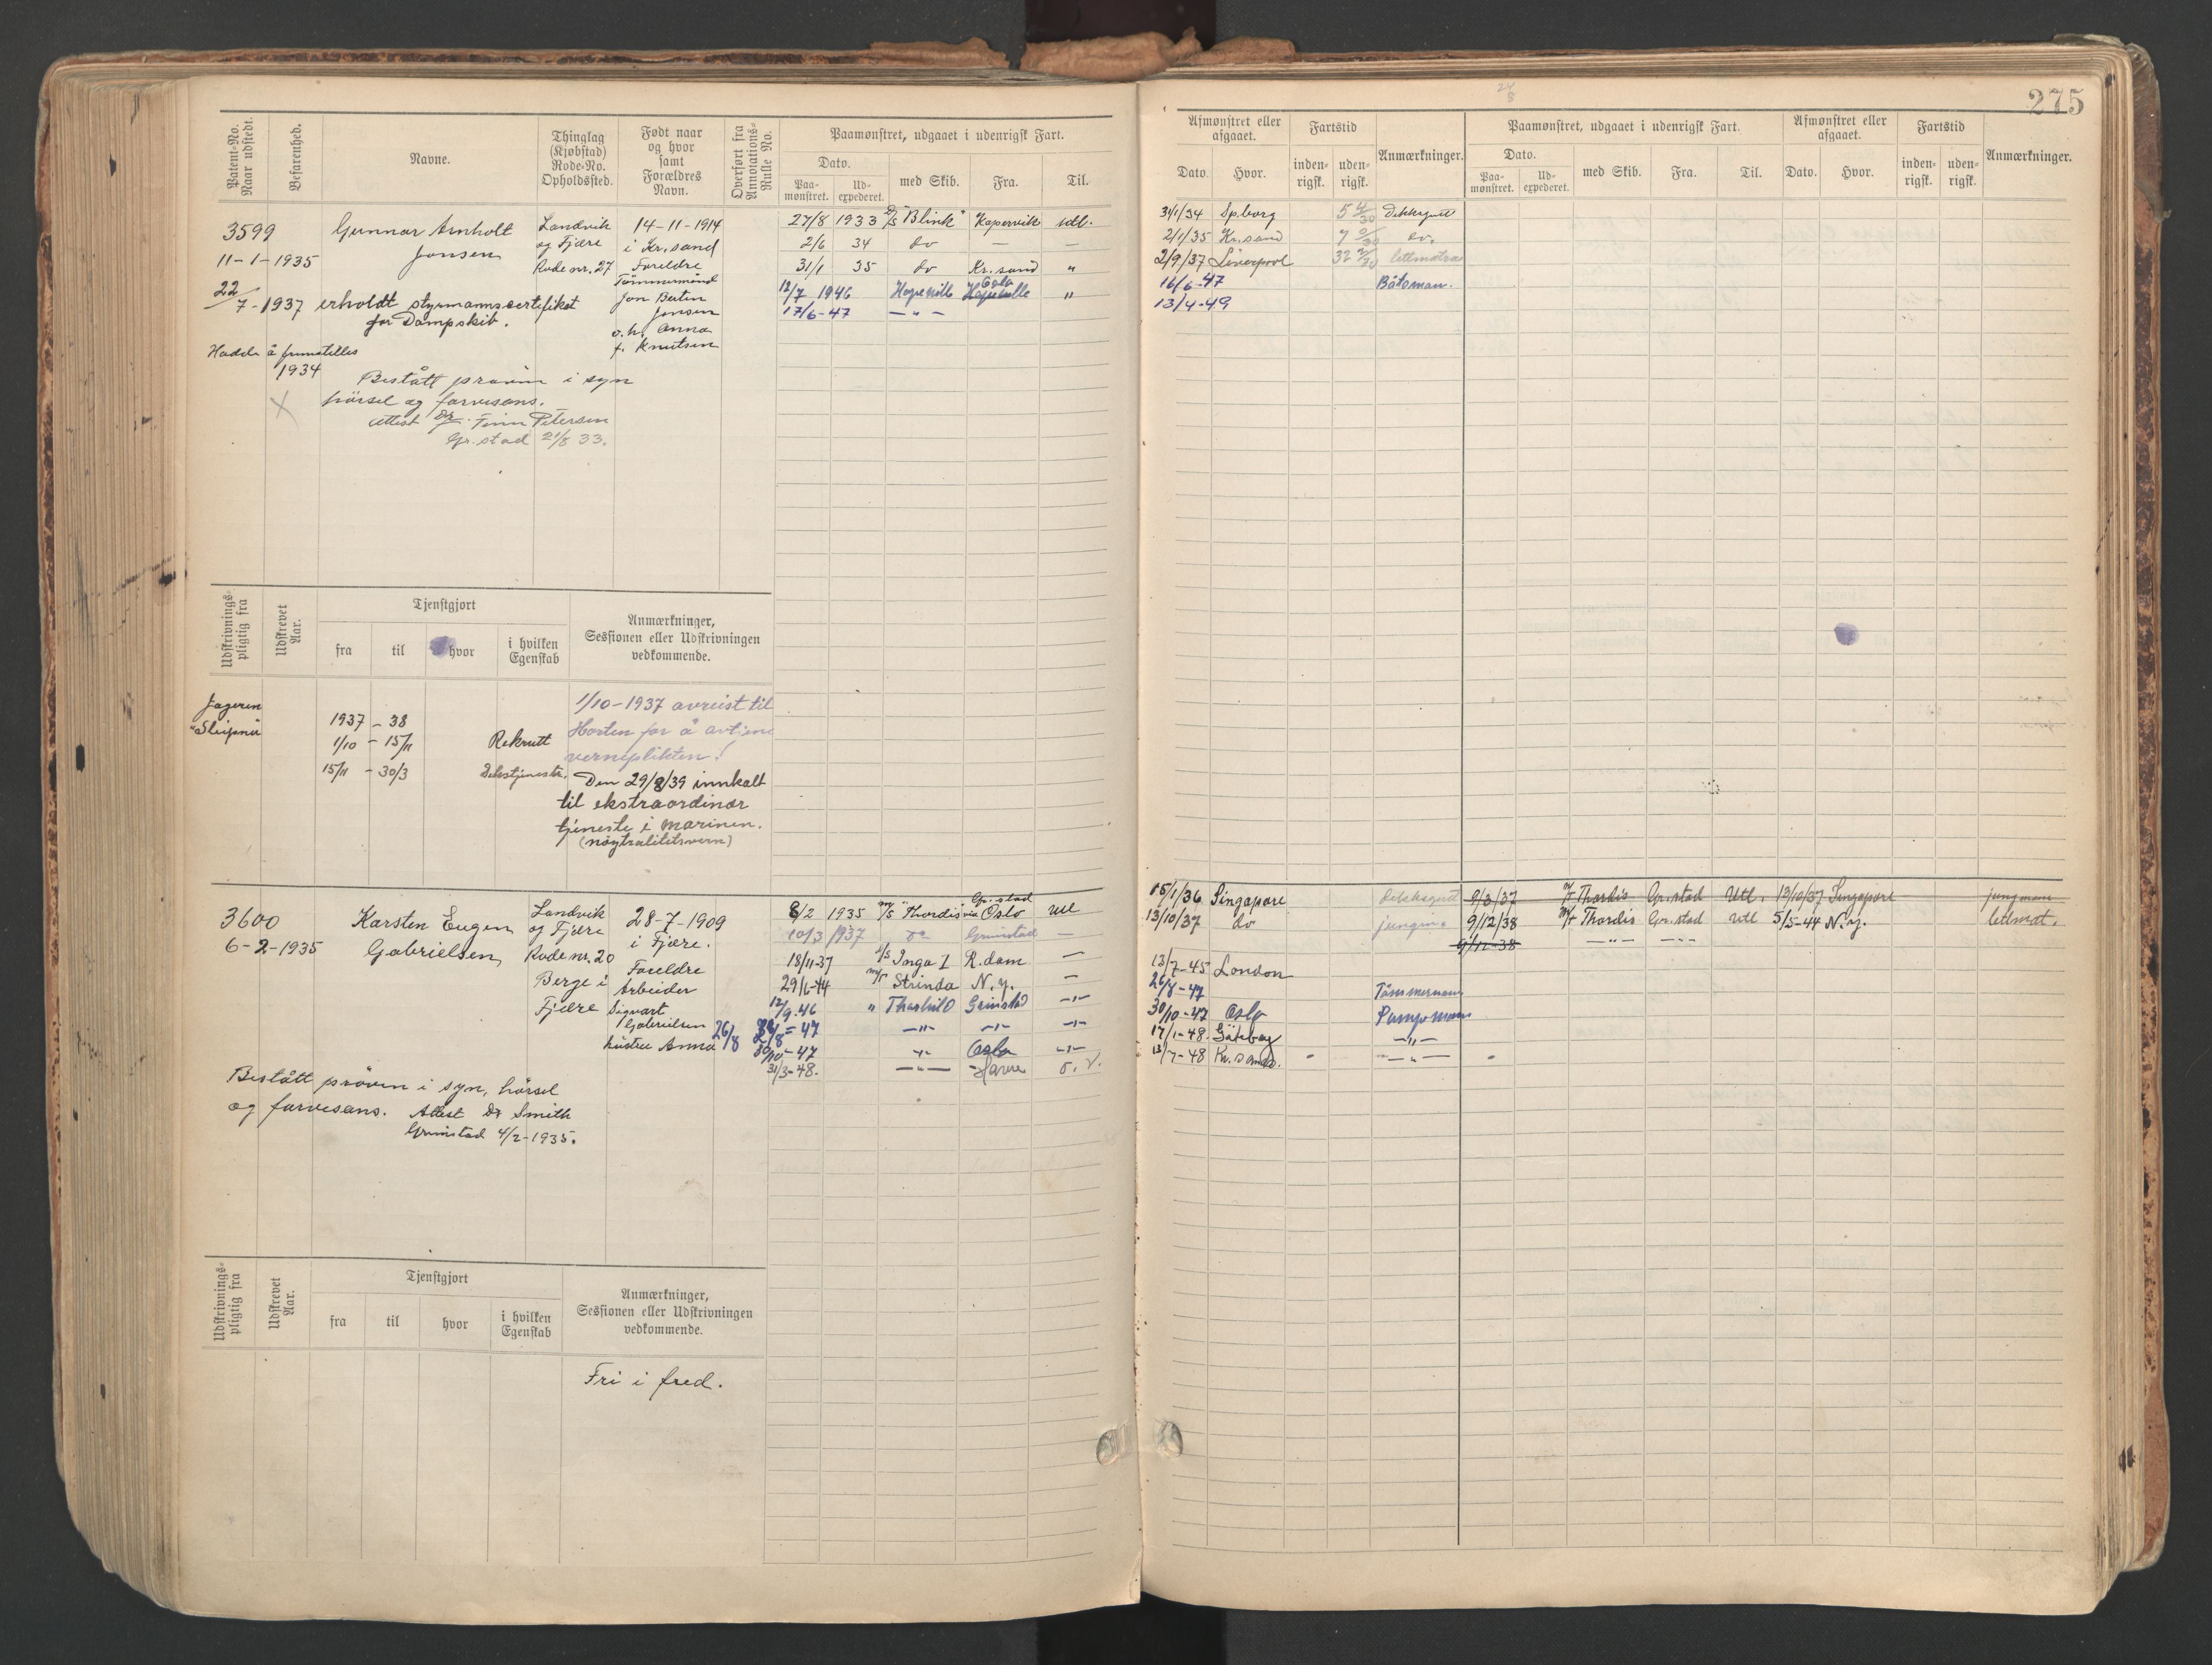 275
Patent-No.
Naar udstedt.
Befarenhed.
Navne.
Thinglag
(Kjøbstad)
Rode-No.
Opholdssted.
Født naar
og hvor
samt
Forældres
Navn.
Overført fra
Annotations-
Rulle No.
Paamønstret, udgaaet i udenrigsk Fart.
Dato.
Paa-
mønstret.
Ud-
expederet.
med Skib.
Fra.
Til.
Afmønstret eller
afgaaet.
Dato.
Hvor.
Fartstid
inden-
rigsk.
uden-
rigsk.
Anmærkninger.
Paamønstret, udgaaet i udenrigsk Fart.
Dato.
Paa-
mønstret.
Ud-
expederet.
med Skib.
Fra.
Til.
Afmønstret eller
afgaaet.
Dato.
Hvor.
Fartstid
inden-
rigsk.
uden-
rigsk.
Anmærkninger.
3599
11-1-1935
Gunnar Arnholt
Jonsen
Landvik
og Fjære
Rode nr. 27
14-11-1914
i Kr.sand
Foreldre
Tømmermand
Jon Bertin
Jonsen
o.h. Anna
f. Knutsen
22/7-1937 erholdt styrmannscertifikat
for Dampskib.
1934
Bestått prøven i syn
hørsel og farvesans.
Attest Dr. Finn Petersen
Gr.stad 21/8 33.
27/8 1933 D/S "Blink" Kopervik utl.
2/6 34 do — —
31/1 35 do Kr.sand "
12/7 1946 Hopeville Oslo "
17/6-47 — " —
31/1/34 Sp.borg Dekksgutt
2/1/35 Kr.sand do.
2/9/37 Liverpool lettmatros
16/6-47 Båtsman.
13/4-49
Udskrivnings-
pligtig fra
Udskrevet
Aar.
Tjenstgjort
fra
til
hvor
i hvilken
Egenskab
Anmærkninger,
Sessionen eller Udskrivningen
vedkommende.
Jageren
"Sleipner"
1937 - 38
1/10 - 15/11 Rekrutt
15/11 - 30/3 Dekstjeneste.
1/10-1937 avreist til
Horten for å avtjene
verneplikten!
Den 29/8/39 innkalt
til ekstraordinær
tjeneste i marinen.
(nøytralitetsvern)
3600
6-2-1935
Karsten Eugen
Gabrielsen
Landvik
og Fjære
Rode nr. 20
Berge i
Fjære
28-7-1909
i Fjære.
Foreldre
Arbeider
Sigvart
Gabrielsen
hustru Anna
Bestått prøven i syn, hørsel
og farvesans. Attest Dr Smith
Grimstad 4/2-1935.
8/2 1935 M/S "Thordis" Gr.stad via Oslo Utl
10/3 1937 do Grimstad —
18/11-37 D/S Inga I R.dam —
29/6-44 M/T Strinda N.y. —
12/9.46 " Thorhild Grimstad —"—
26/8 26/8=47 —"— —"— —"—
30/10-47 —"— Oslo —"—
31/3-48. —"— Havre
15/1/36 Singapore Dekksgutt
13/10/37 do jungm.
13/7-45 London
26/8-47 Tømmermann
30/10-47 Oslo Pumpemann
17/1-48. Gøteborg —"—
13/7-48 Kr.sand. —"—
9/3/37 M/T Thordis Gr.stad Utl. 13/10/37 Singapore jungmann
9/12/38 M/T Thordis Gr.stad Utl 5/5-44 N.y. lettmat.
9/12-38 —"— —"—
Udskrivnings-
pligtig fra
Udskrevet
Aar.
Tjenstgjort
fra
til
hvor
i hvilken
Egenskab
Anmærkninger,
Sessionen eller Udskrivningen
vedkommende.
Fri i fred.